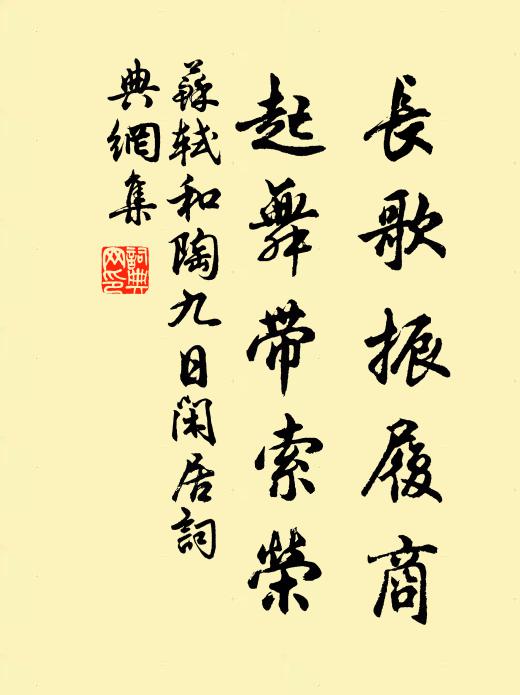 長歌振履商
起舞帶索榮
蘇軾和陶九日閑居詞
典網集
詞典
网印